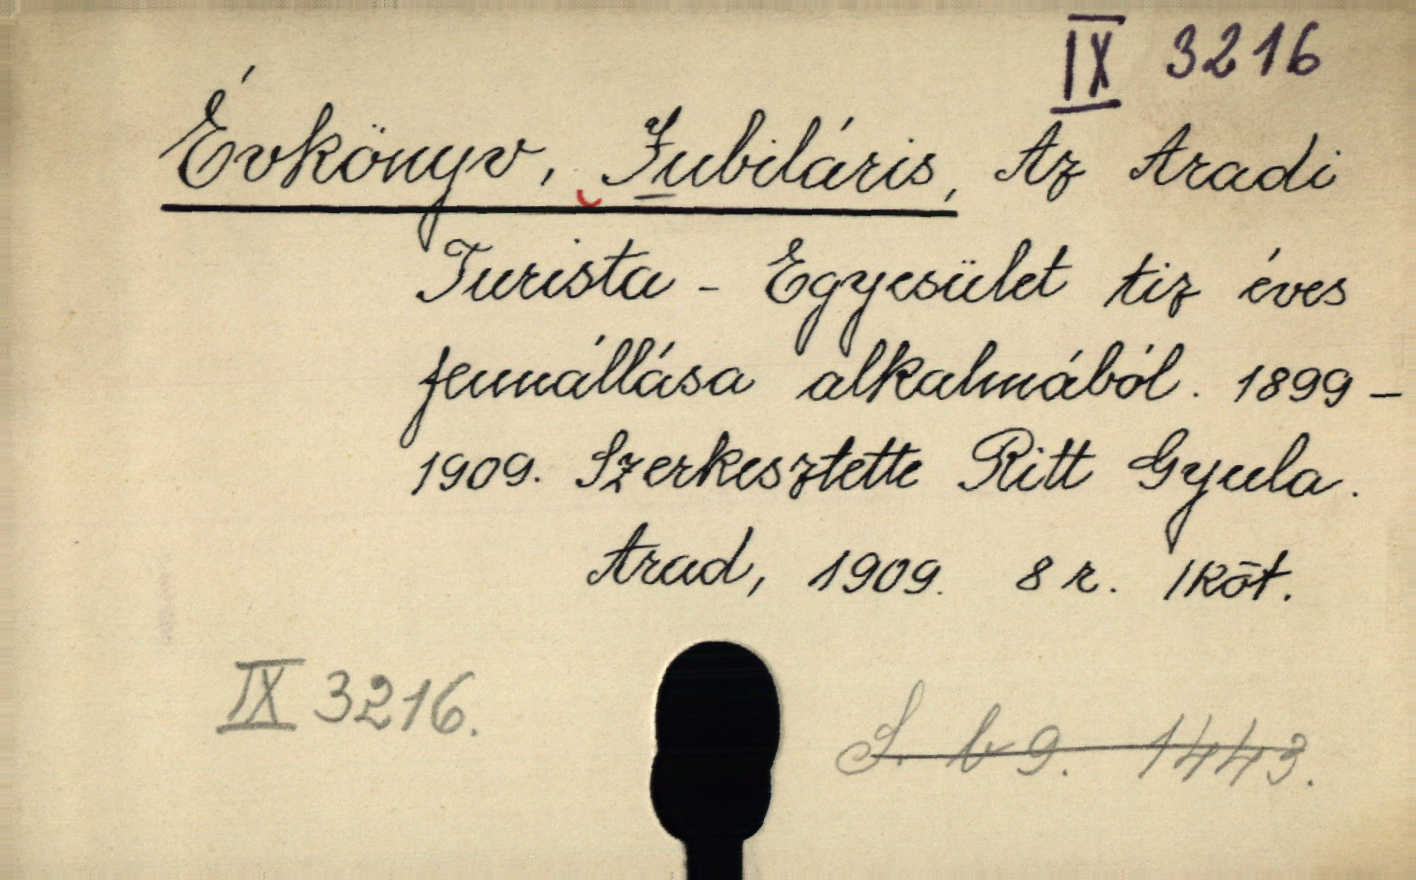 IX 3216
Évkönyv, Jubiláris, Az Aradi
Turista - Egyesület tiz éves
fennállása alkalmából. 1899 -
1909. Szerkesztette Ritt Gyula.
Arad, 1909. 8 r. 1 köt.
IX 3216.
S. b 9. 1443.